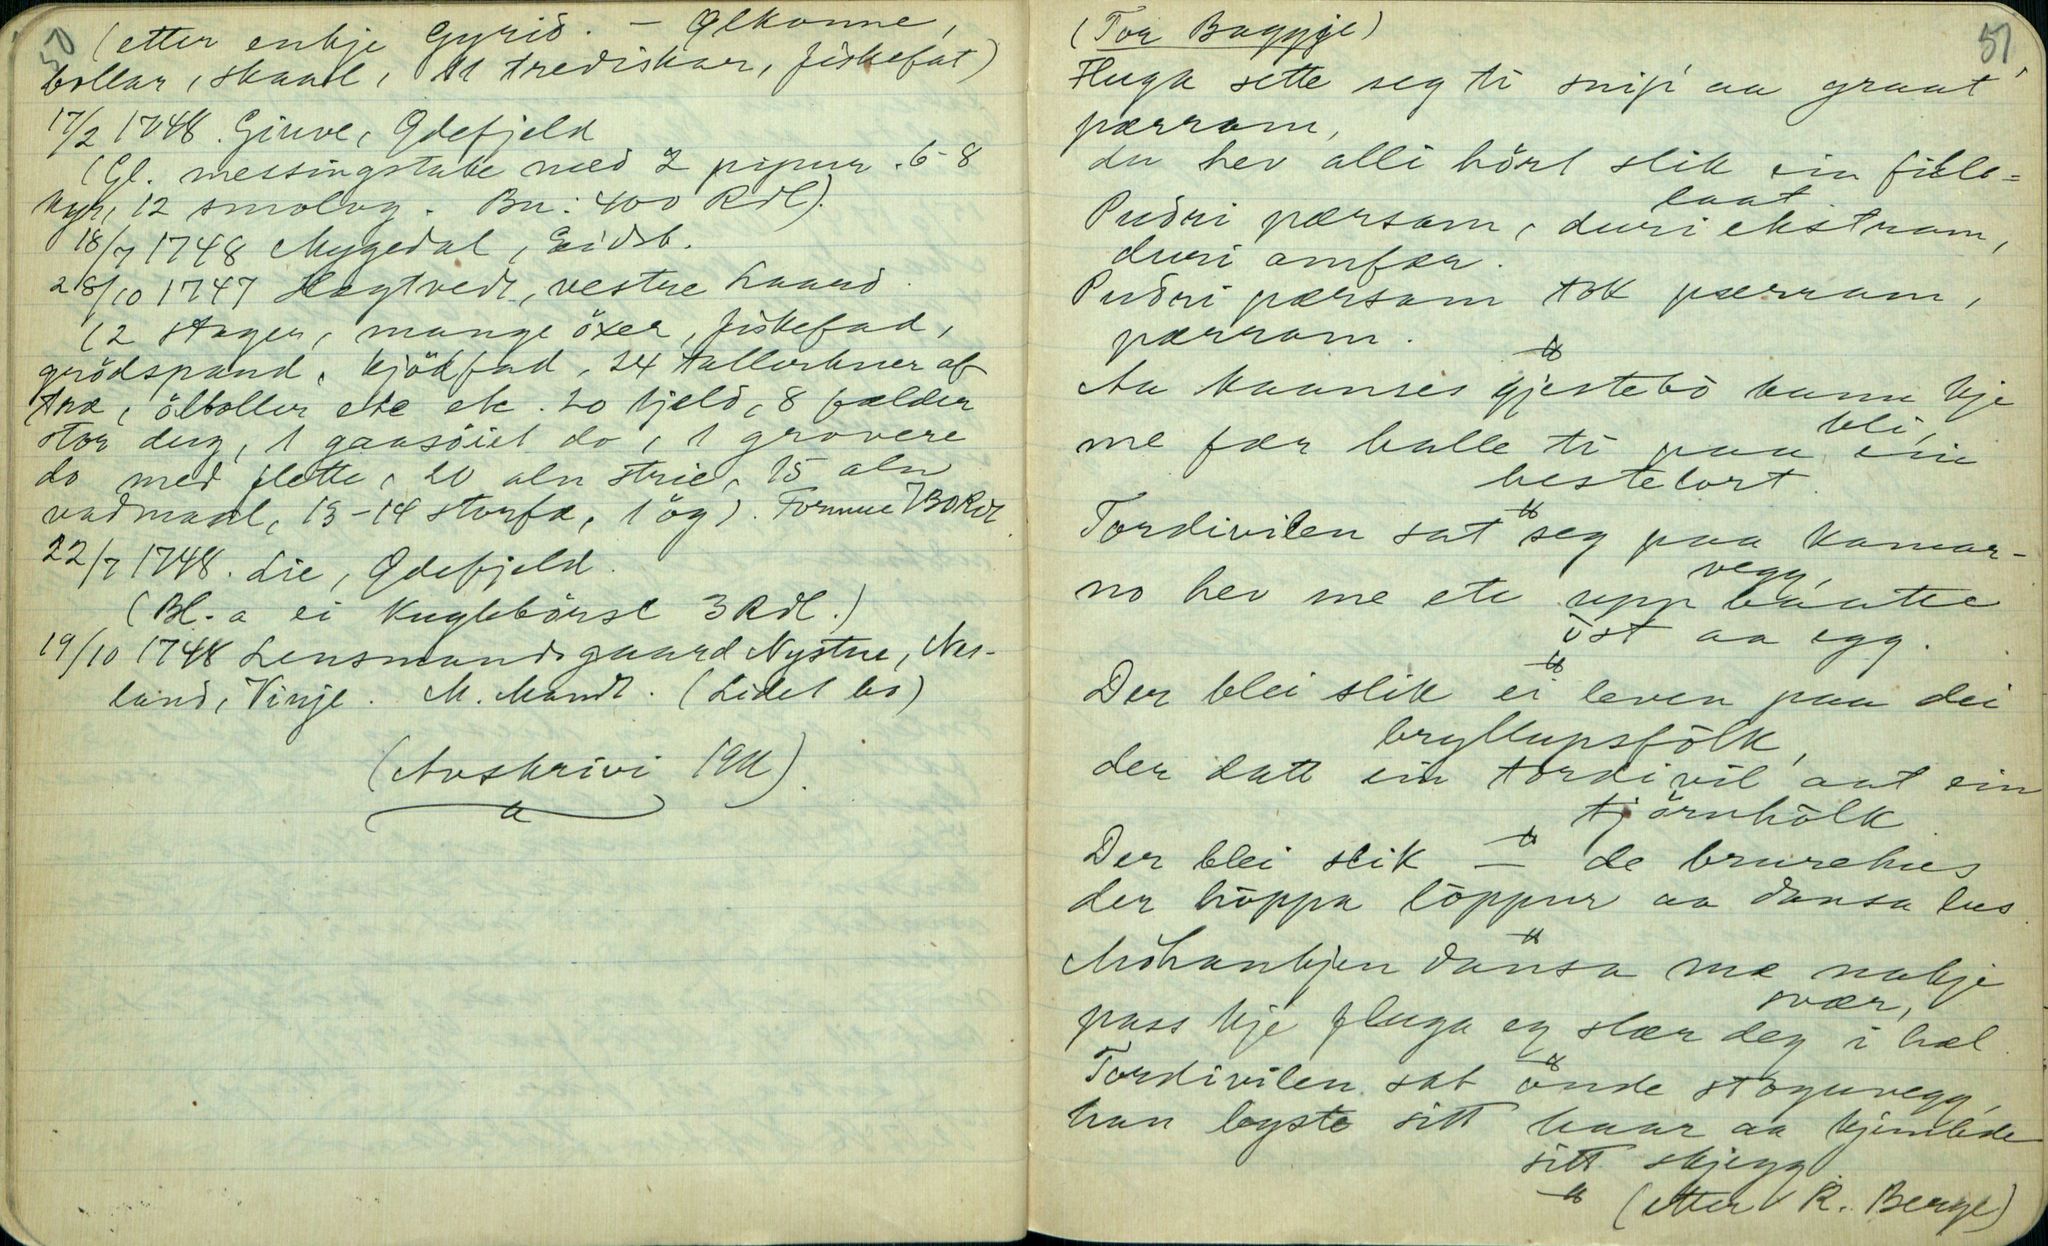 50
(etter enkje Gyrid. – Ølkanne,
bollar, skaal, 11 trediskar, fiskefat)
17/2 1748 Giuve, Ødefjeld
(Gl. messingstake med 2 pipur. 6-8
kyr, 12 smolog. Bu: 400 Rdl).
18/7 1748 Mygedal, Eidsb.
28/10 1747 Hægtvedt, vestre Laard.
(2 stager, mange öxer, fiskefad,
grödspand, kjödfad, 24 tallerkner af
træ, ölboller etc etc. 20 kjeld, 8 fælder
stor dug, 1 gaasöiet do, 1 grovere
do med flette, 20 aln strie, 15 aln
vadmaal, 13-14 storfæ, 1 ög). Formue 780 Rdl
22/7 1748. Lie, Ødefjeld.
(Bl. a ei kuglebörse 3 Rdl.)
19/10 1748 Lensmandsgaard Nystue, Nes-
land, Vinje. M. Mandt. (Lidet bo)
(Avskrivi 1911).
51
(Tor Baggje)
Fluga sette seg ti snip' aa graat'
pærram,
du hev alli hört slik ein fiele=
laat
Pudri pærsam, duri ekstram,
duri omfær.
Pudri pærsam tok pærram,
pærram.
Aa kaanses gjestebö kunn kje
bli,
me fær halle ti paa ein
hestelort.
Tordivilen sat seg paa kamar-
vegg,
no hev me ete upp baatte
ost aa egg.
Der blei slik ei leven paa dei
bryllupsfölk,
der datt ein tordivil aat ein
tjörnhölk
Der blei slik — de brurehus
der höppa löppur aa dansa lus.
Möhankjen dansa mæ nækje
svær,
pass kje fluga eg slær deg i hæl
Tordivilen sat önde stoguvegg,
han löyste sitt haar aa kjembde
sitt skjegg
(etter R. Berge)